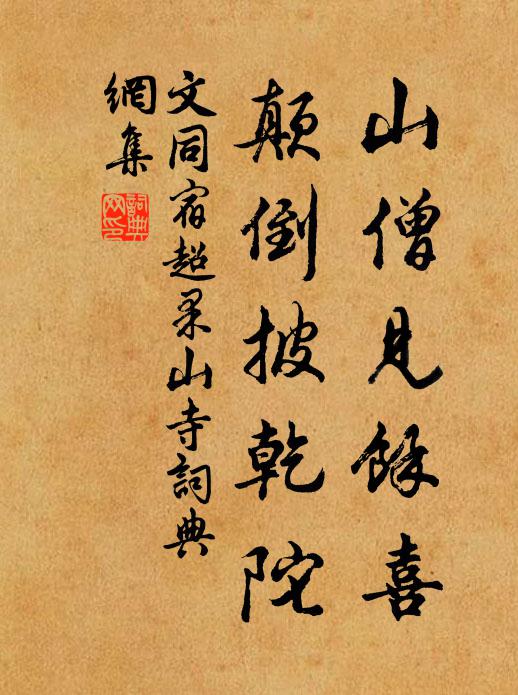 山僧見餘喜
顛倒披乾陀
文同宿超果山寺詞典
網集
詞典网印